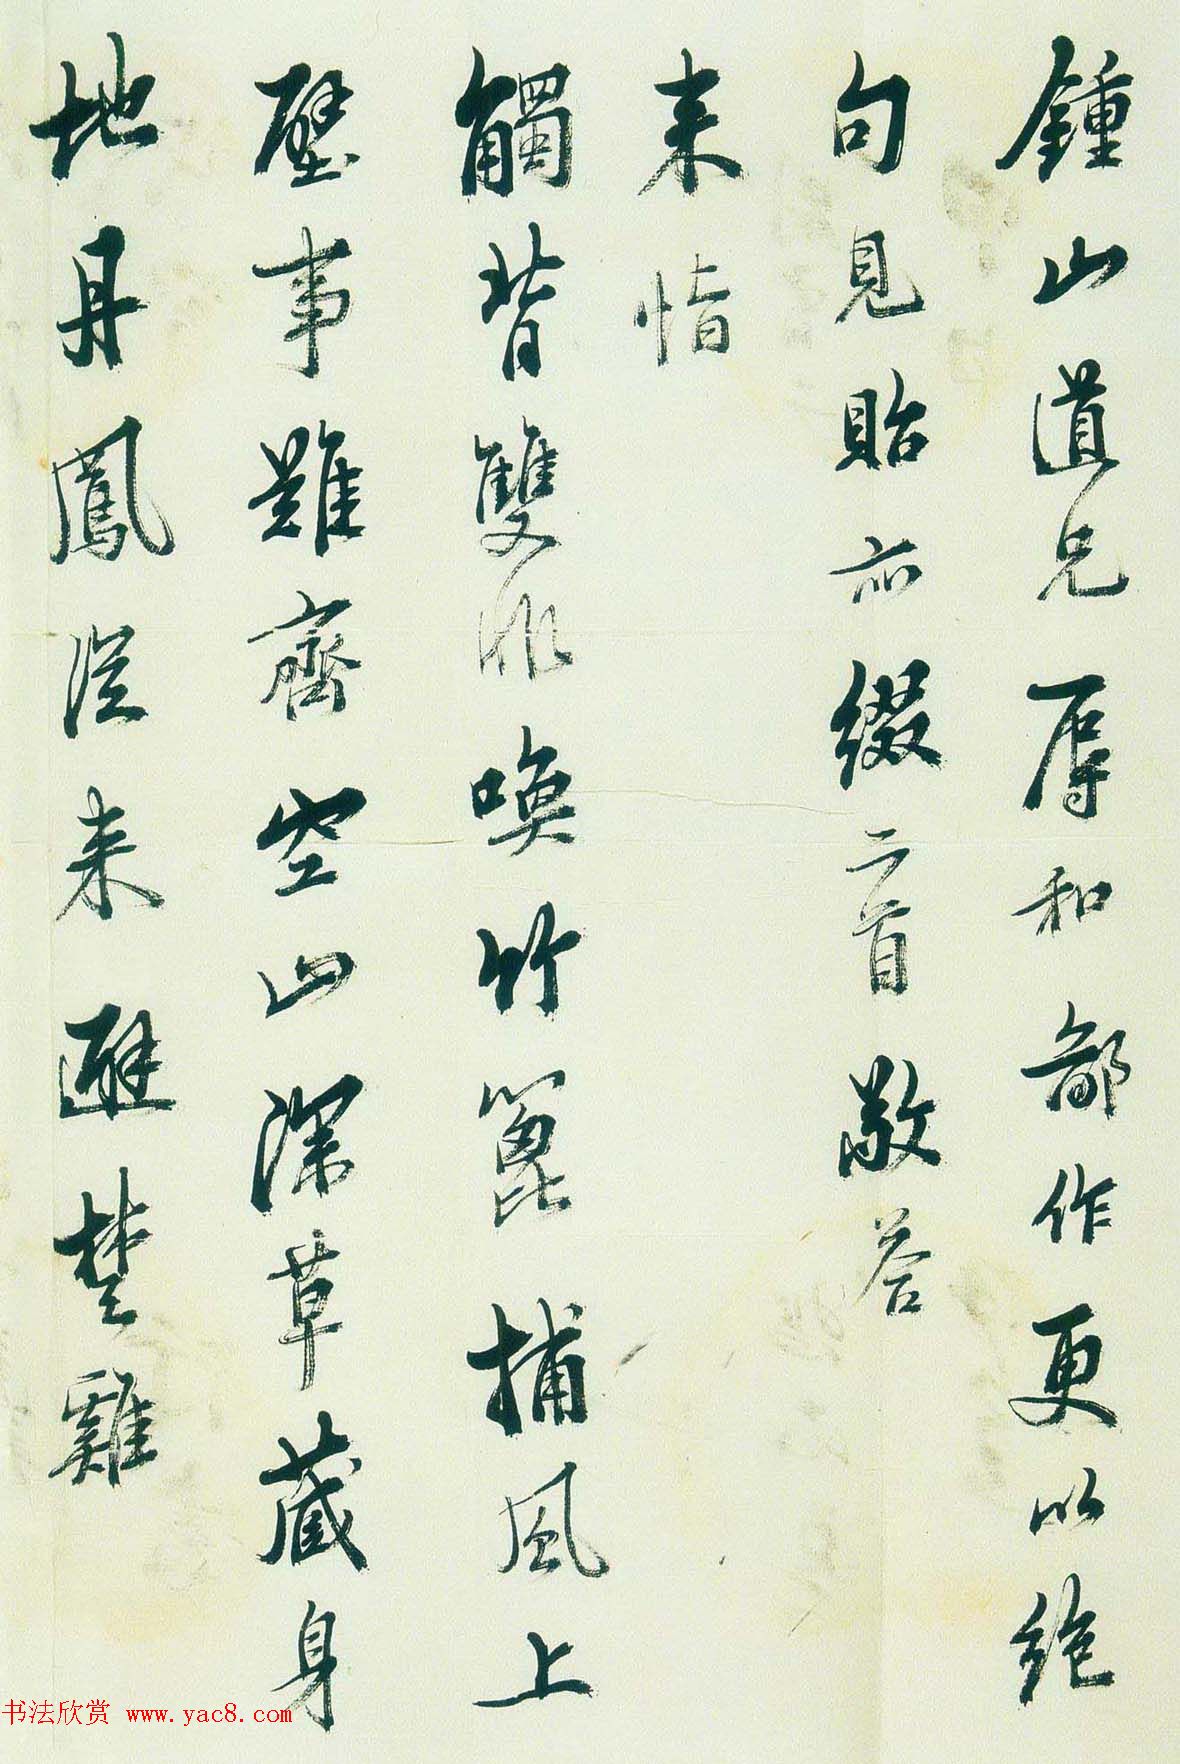 鍾山道兄辱和鄙作更以絶
句見貽亦綴二首敬答
来惜
觸背雙非喚竹篦捕風上
壁事難齊空山深草藏身
地丹鳳從来避楚雞
书法欣赏 www.yac8.com